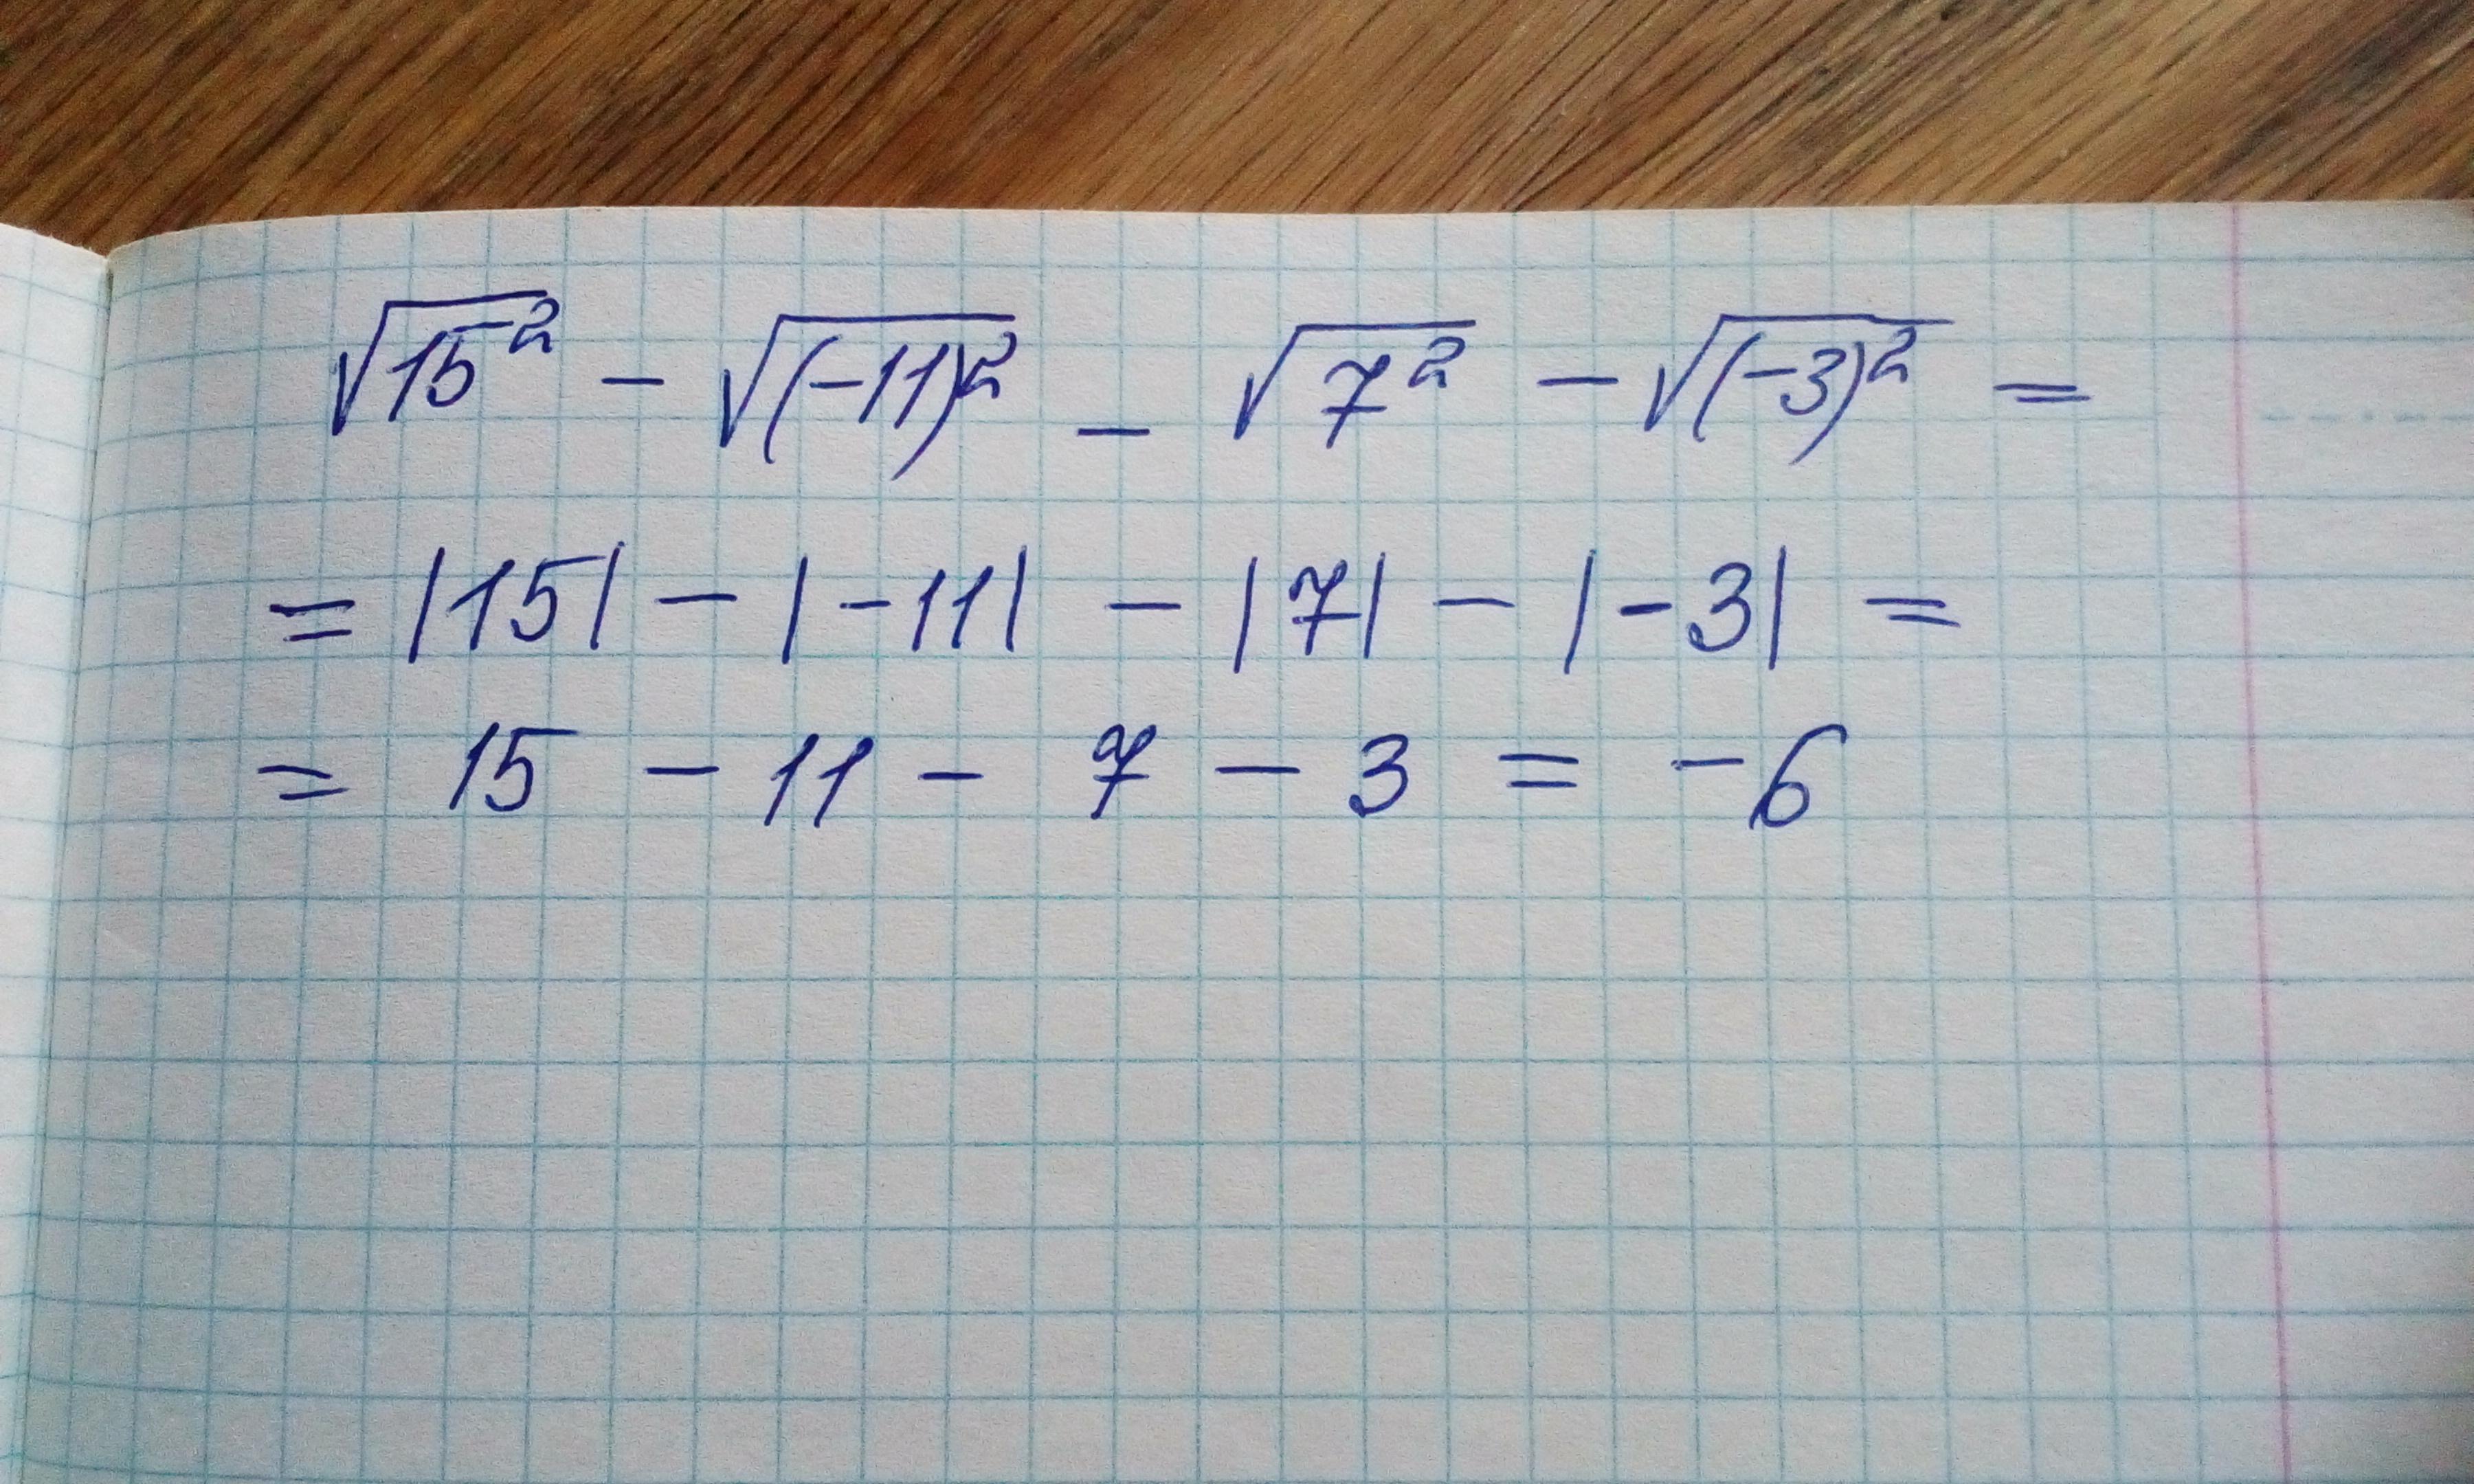 √15² − √(−11)² − √7² − √(−3)² =
= |15| − |−11| − |7| − |−3| =
= 15 − 11 − 7 − 3 = −6